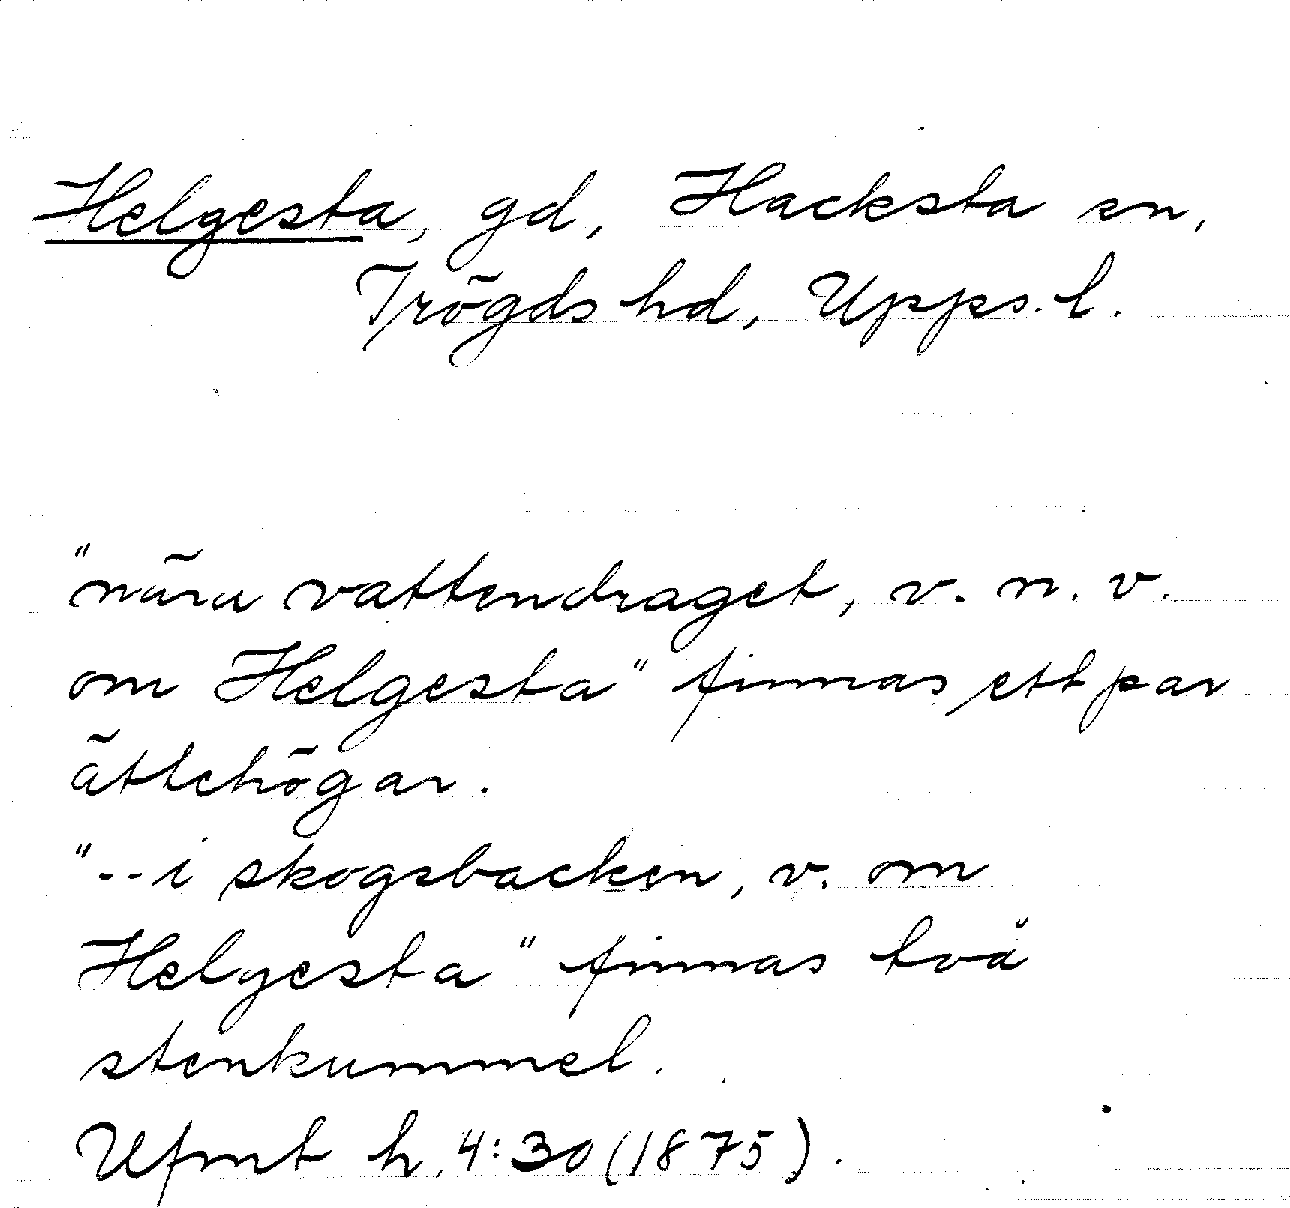 Helgesta, gd, Hacksta sn,
Trögds hd, Upps. l.
"nära vattendraget, v. n. v.
om Helgesta" finnas ett par
ättehögar.
"--i skogsbacken, v. om
Helgesta" finnas två
stenkummel.
Ufmt h. 4:30 (1875).